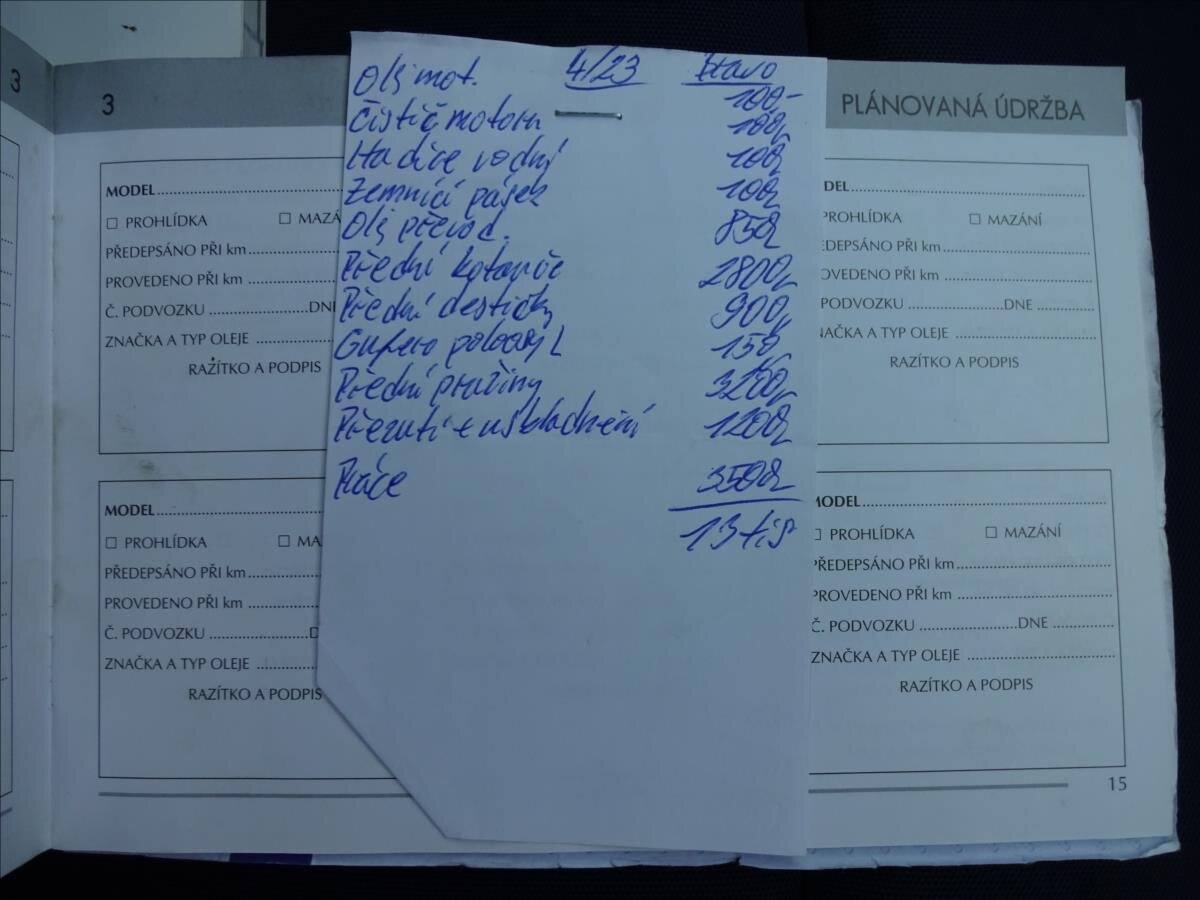 3
3
PLÁNOVANÁ ÚDRŽBA
Olj mot. 4/23
100,-
Čistič motoru 100,-
Hadice vodní 100,-
Zemnící pásek 100,-
Olj převod. 850,-
Přední kotouče 2800,-
Přední destičky 900,-
Gufero poloosy L 150,-
Přední pružiny 3200,-
Přezutí + uskladnění 1200,-
Práce 3500,-
13 tis
MODEL
□ PROHLÍDKA □ MAZÁ
PŘEDEPSÁNO PŘI km
PROVEDENO PŘI km
Č. PODVOZKU DN
ZNAČKA A TYP OLEJE
RAZÍTKO A PODPIS
DEL
□ PROHLÍDKA □ MAZÁNÍ
EDEPSÁNO PŘI km
OVEDENO PŘI km
PODVOZKU DNE
NAČKA A TYP OLEJE
RAZÍTKO A PODPIS
MODEL
□ PROHLÍDKA □ MA
PŘEDEPSÁNO PŘI km
PROVEDENO PŘI km
Č. PODVOZKU D
ZNAČKA A TYP OLEJE
RAZÍTKO A PODPIS
MODEL
□ PROHLÍDKA □ MAZÁNÍ
PŘEDEPSÁNO PŘI km
PROVEDENO PŘI km
Č. PODVOZKU DNE
ZNAČKA A TYP OLEJE
RAZÍTKO A PODPIS
15